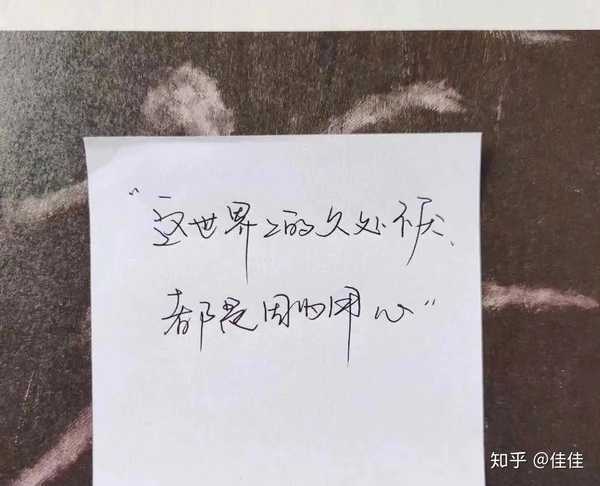 “这世界上的久处不厌、
都是因为用心”
知乎 @佳佳